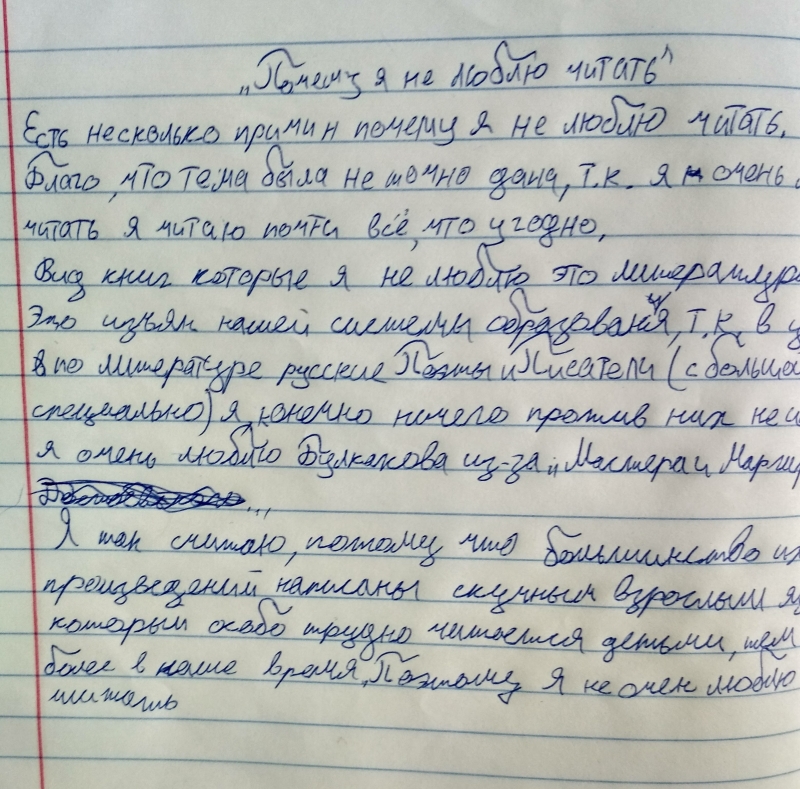 „Почему я не люблю читать"
Есть несколько причин почему я не люблю читать.
Благо, что тема была не точно дана, т.к. я очень
читать я читаю почти всё, что угодно,
Вид книг которые я не люблю это литература
Это изъян нашей системы образования, т.к. в
по литературе русские Поэты и Писатели (с большой
специально) я, конечно ничего против них не
я очень люблю Булкакова из-за „Мастера и Марги
...
Я так считаю, потому что большинство их
произведений написаны скучным взрослым
которым особо трудно читается детьми, тем
более в наше время, Поэтому я не очен люблю
читать